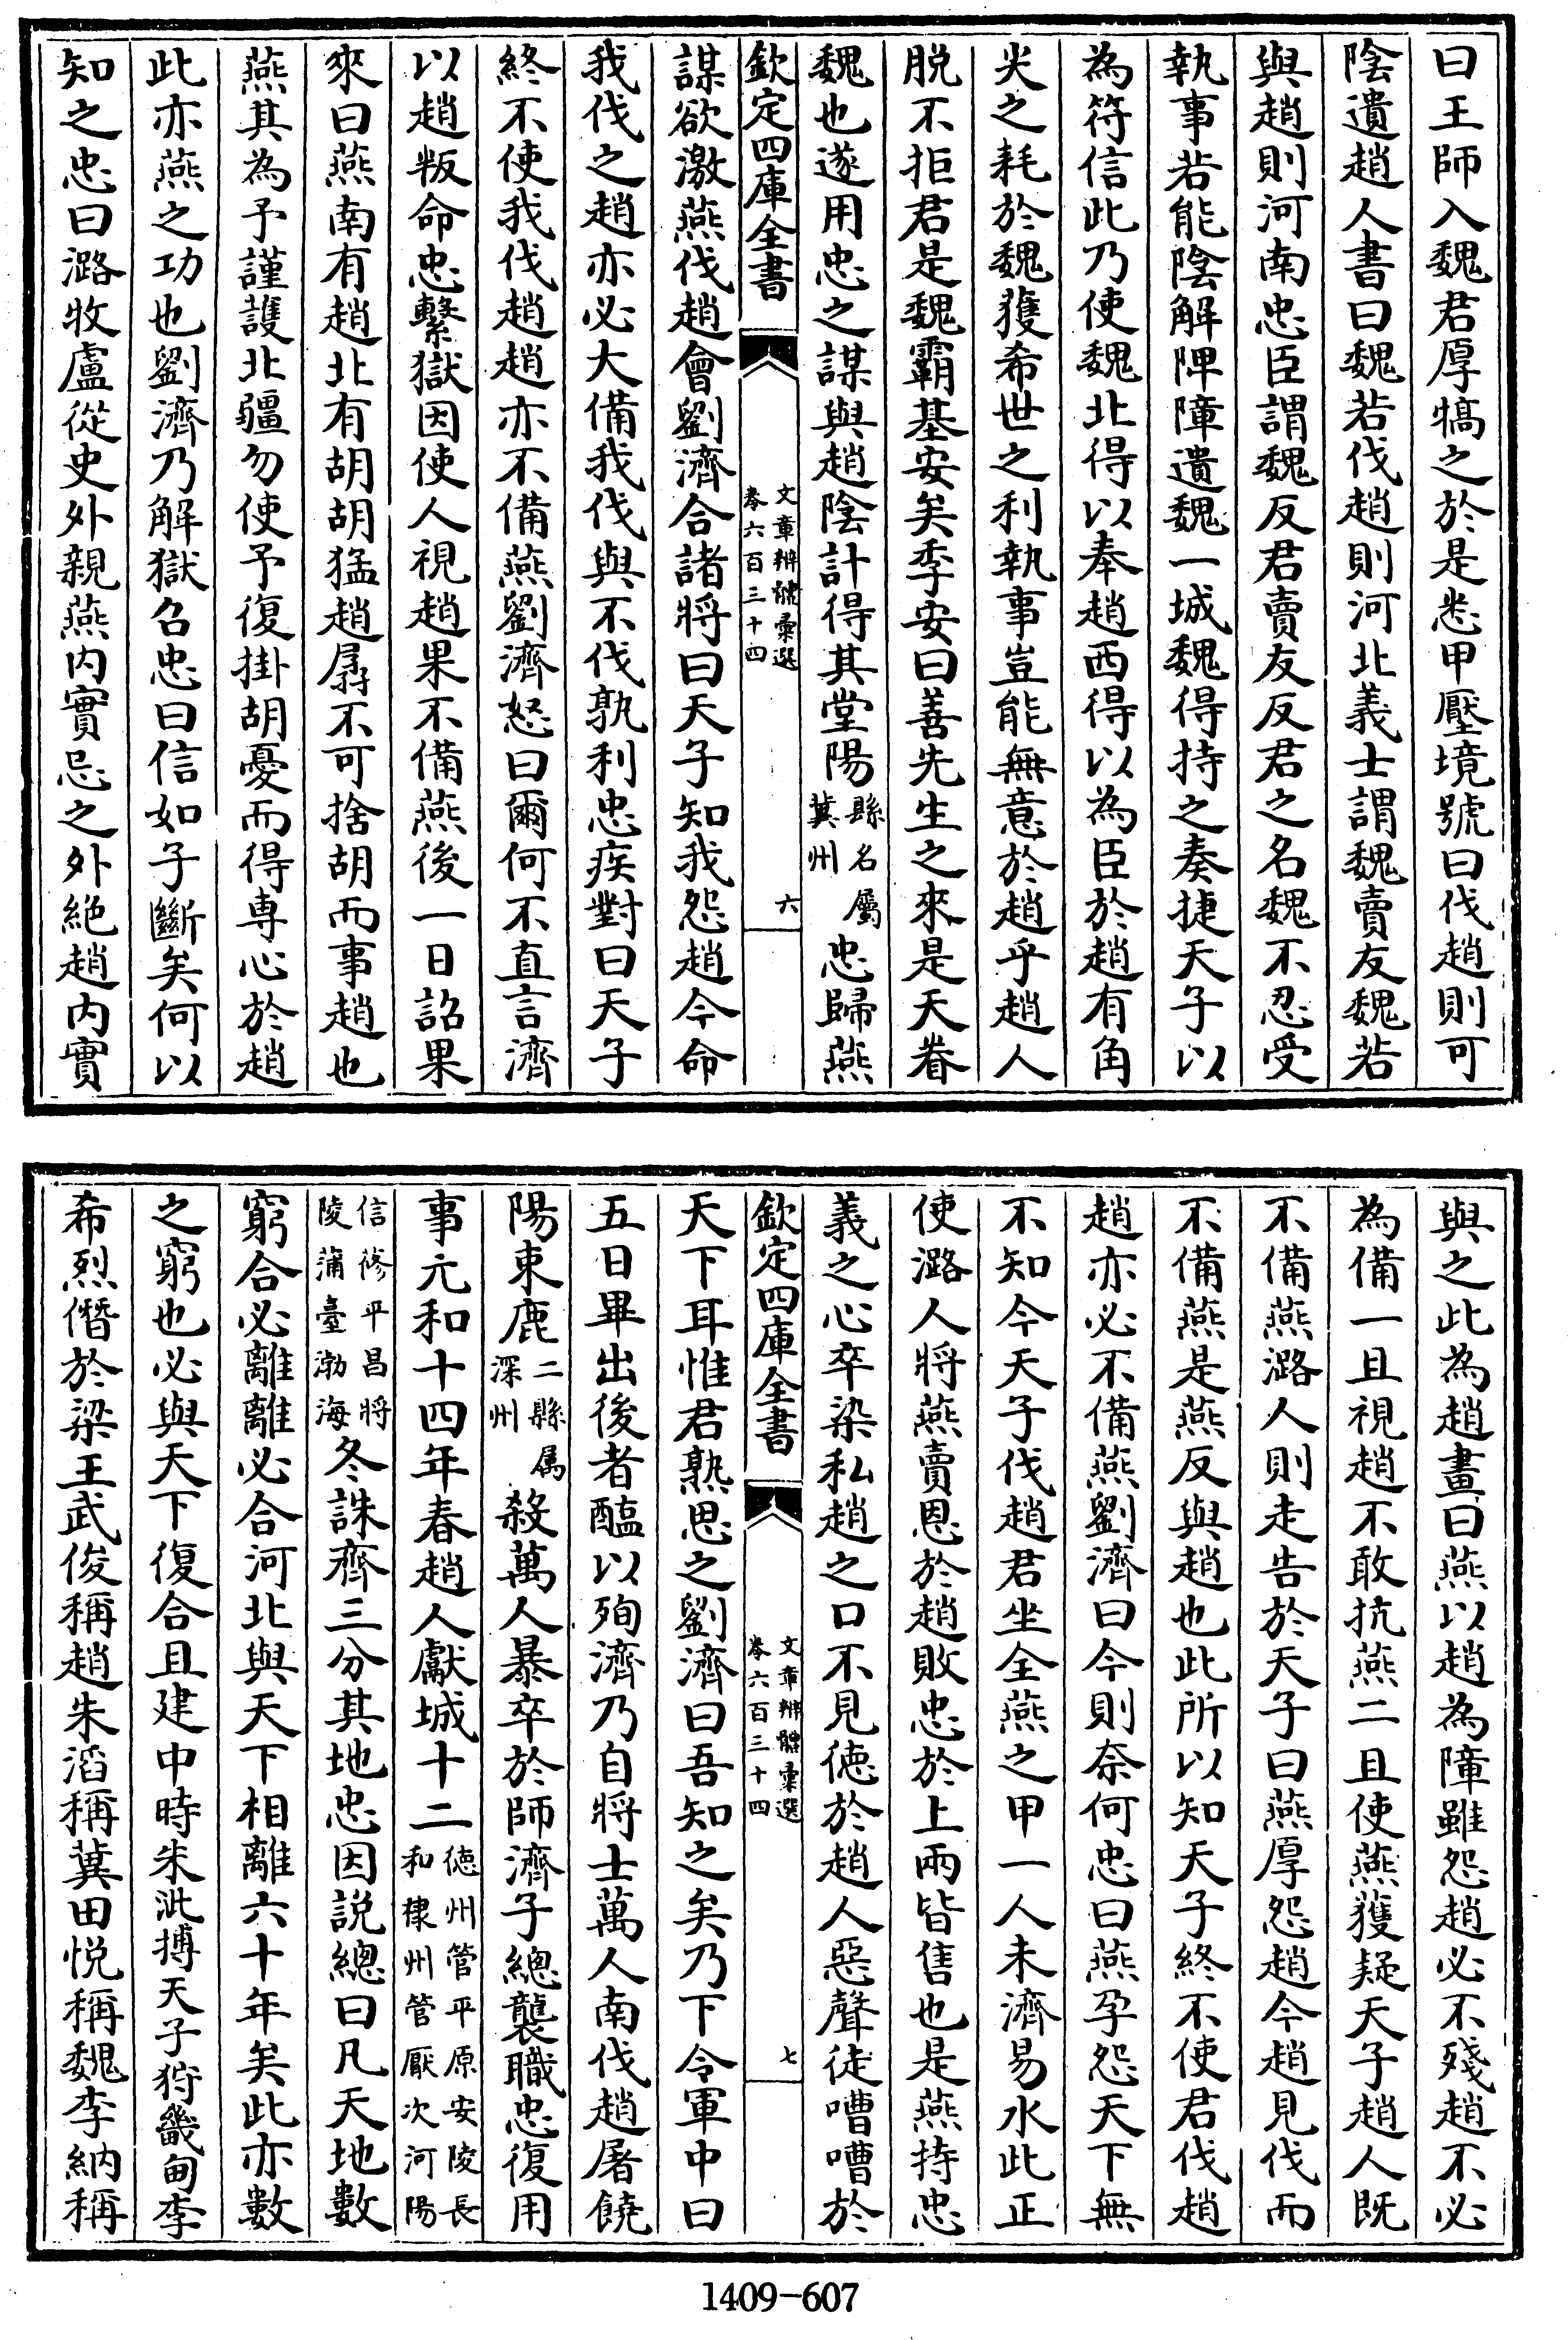 曰王師入魏君厚犒之於是悉甲壓境號曰伐趙則可
陰遺趙人書曰魏若伐趙則河北義士謂魏賣友魏若
與趙則河南忠臣謂魏反君賣友反君之名魏不忍受
執事若能陰解陴障遺魏一城魏得持之奏捷天子以
為符信此乃使魏北得以奉趙西得以為臣於趙有角
尖之耗於魏獲希世之利執事豈能無意於趙乎趙人
脱不拒君是魏霸基安矣季安曰善先生之來是天眷
魏也遂用忠之謀與趙陰計得其堂陽縣名屬冀州忠歸燕
欽定四庫全書
文章辨體彙選
卷六百三十四
六
謀欲激燕伐趙會劉濟合諸將曰天子知我怨趙今命
我伐之趙亦必大備我伐與不伐孰利忠疾對曰天子
終不使我伐趙趙亦不備燕劉濟怒曰爾何不直言濟
以趙叛命忠繫獄因使人視趙果不備燕後一日詔果
來曰燕南有趙北有胡胡猛趙孱不可捨胡而事趙也
燕其為予謹護北疆勿使予復掛胡憂而得専心於趙
此亦燕之功也劉濟乃解獄召忠曰信如子斷矣何以
知之忠曰潞牧盧從史外親燕内實忌之外絶趙内實
與之此為趙畫曰燕以趙為障雖怨趙必不殘趙不必
為備一且視趙不敢抗燕二且使燕獲疑天子趙人既
不備燕潞人則走告於天子曰燕厚怨趙今趙見伐而
不備燕是燕反與趙也此所以知天子終不使君伐趙
趙亦必不備燕劉濟曰今則奈何忠曰燕孕怨天下無
不知今天子伐趙君坐全燕之甲一人未濟易水此正
使潞人將燕賣恩於趙敗忠於上兩皆售也是燕持忠
義之心卒染私趙之口不見徳於趙人惡聲徒嘈嘈於
欽定四庫全書
文章辨體彙選
卷六百三十四
七
天下耳惟君熟思之劉濟曰吾知之矣乃下令軍中曰
五日畢出後者醢以殉濟乃自將士萬人南伐趙屠饒
陽束鹿二縣属深州殺萬人暴卒於師濟子總襲職忠復用
事元和十四年春趙人獻城十二徳州管平原安陵長河棣州管厭次陽
信滌平昌將陵蒲臺渤海冬誅齊三分其地忠因説總曰凡天地數
窮合必離離必合河北與天下相離六十年矣此亦數
之窮也必與天下復合且建中時朱泚搏天子狩畿甸李
希烈僭於梁王武俊稱趙朱滔稱冀田悦稱魏李納稱
1409-607